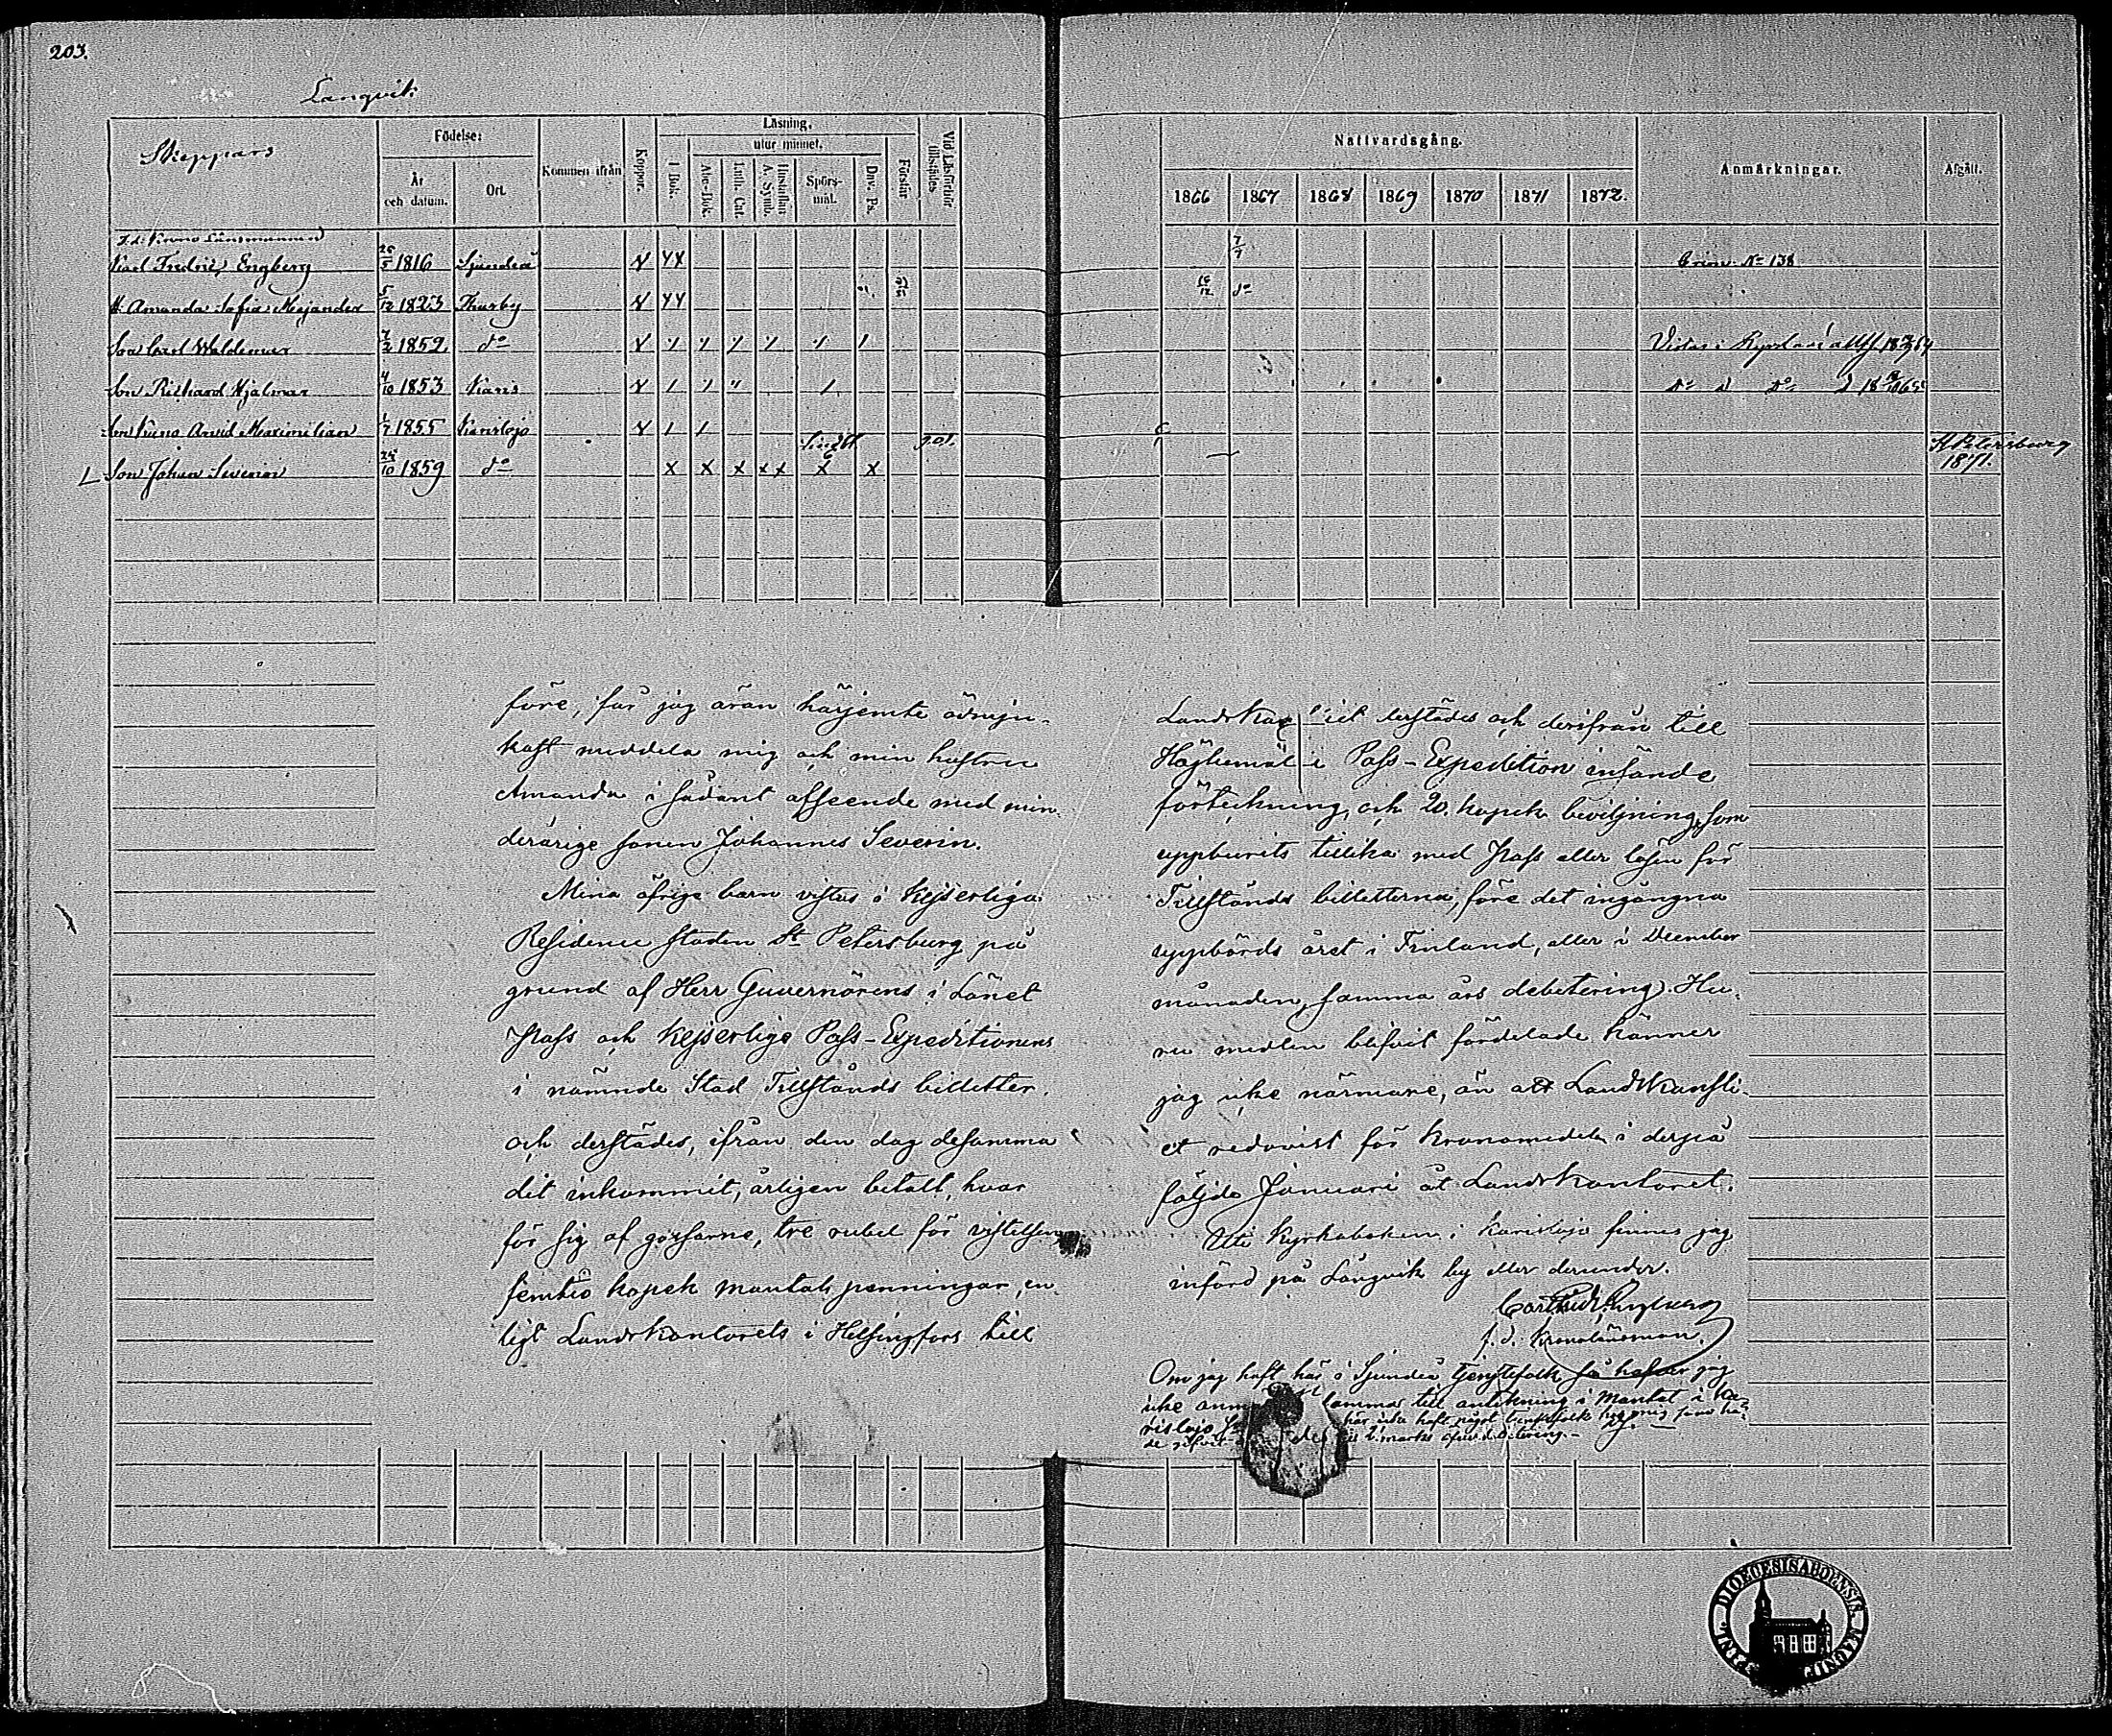 203.
Langvik
Skeppars
Födelse:
År och datum.
Ort.
Kommen ifrån
Koppor.
Läsning.
utur minnet.
I Bok.
Abc-Bok.
Luth. Cat.
Hustaflan A. Symb.
Spörs-mål.
Dav. Ps.
Förstår
Vid Läsförhör tillstädes
Nattvardsgång.
1866 1867 1868 1869 1870 1871 1872.
Anmärkningar.
Afgått.
F.d. Krono Länsmannen
Karl Fredric Engberg 26/5 1816 Sjundeå 7/7 Crim. No 138
H. Amanda Sofia Majander 5/12 1823 Thusby do
Son Carl Waldemar 1859 do Vistas i Ryssland
Son Richard Hjalmar 4/10 1853 Karis do
Son Kuno Arvid Maximilian 1/7 1855 Karislojo
Son Johan Severin 24/10 1859 do St Petersburg 1871.
före, får jag äran härjemte ödmju-
kast meddela mig och min hustru
Amanda i sådant afseende med min-
derårige sonen Johannes Severin.
Mina öfrige barn vistas i Kejserliga
Residence staden St Petersburg på
grund af Herr Guvernörens i Länet
Pass och Kejserlige Pass-Expeditionens
i nämnde Stad Tillstånds billetter.
och derstädes, ifrån den dag desamma
dit inkommit, årligen betalt, hvar
för sig af gossarne, tre rubel för vistelsen
femtio kopek mantals penningar, en-
ligt Landskontorets i Helsingfors till
Landskan iet derstädes och derifrån till
i Pass-Expedition insände
förteckning, och 20. kopek beviljning, som
uppburits tillika med Pass eller lösen för
Tillstånds billetterna, före det ingångna
uppbörds året i Finland, eller i December
månaden, samma års debitering. Hu-
ru medlen blifvit fördelade känner
jag icke närmare, än att Landskansli-
et redovist för Kronomedel i derpå
följde Januari åt Landskontoret.
Uti Kyrkoboken i Karislojo finnes jag
införd på Långvik by eller derunder.
Carl Fredr. Engberg
f.d. Kronolänsman.
Om jag haft här i Sjundeå tjenstefolk så hafver jag
icke till anteckning i Mantal i Ka-
rislojo här icke haft något tjenstefolk
DIOECESIS ABOENSIS